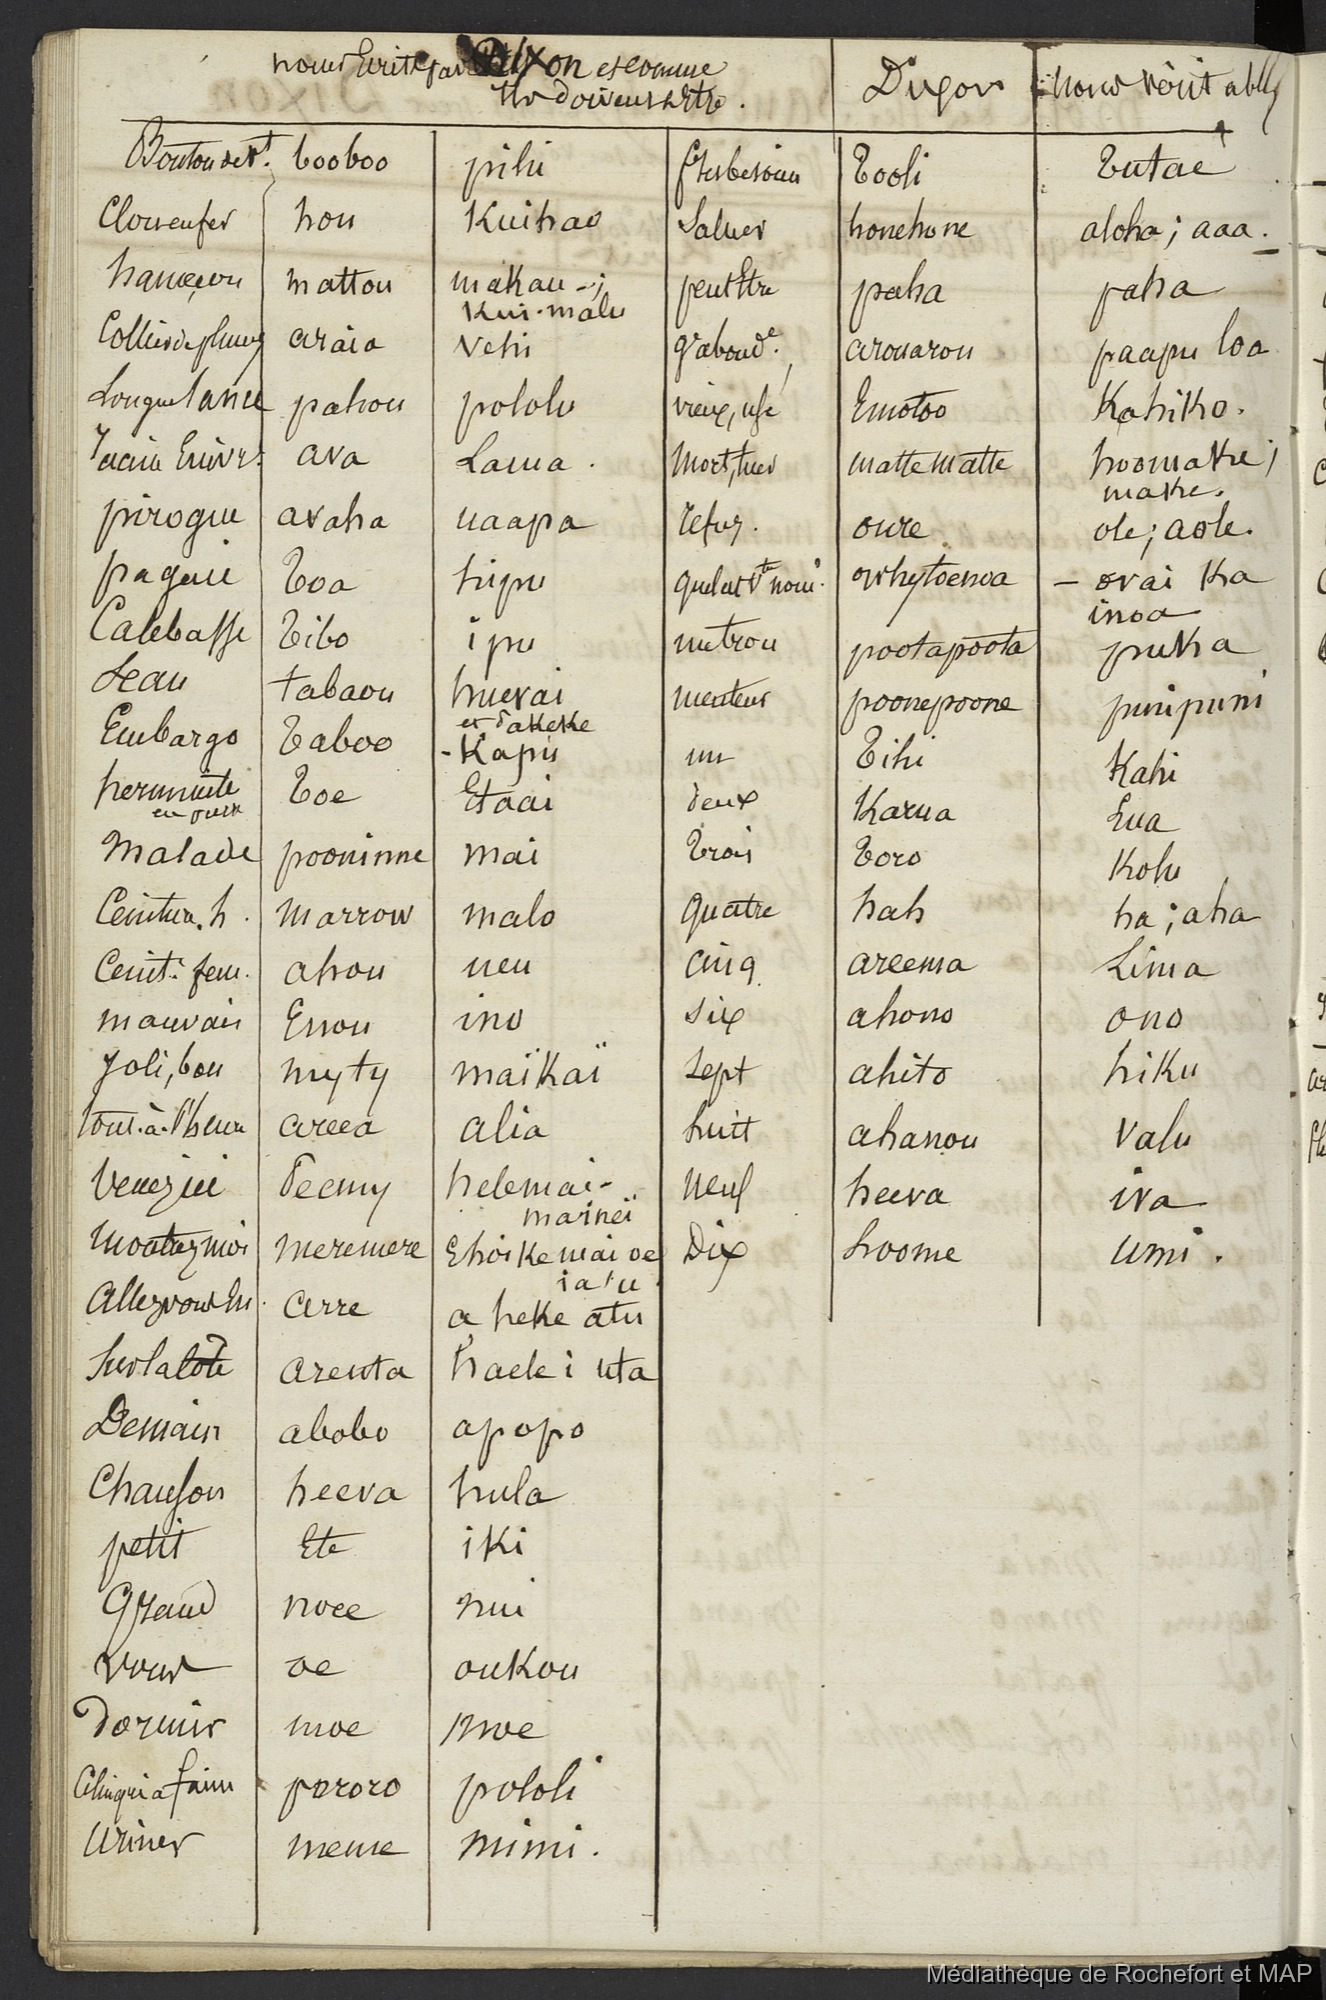 noms Ecrits par Dixon et comme
ils doivent Etre.
Dixon
noms véritables
Bouton de vt. booboo pihi
Clou en fer hou Kuihao
hameçon mattou makau -;
Kui-malu
Collier de plumes araia vehi
Longue lance pahou pololu
racine Enivr. ava Lama.
pirogue avaha uaapa
pagaie Toa hipu
Calebasse Tibo ipu
Seau tabaou huevai
et Takeke
Embargo Taboo - Kapu
herminette Toe Etoai
malade pooninne mai
Ceinture. h. marrow malo
Ceint. fem. ahou ueu
mauvais Enou ino
Joli, bon myty maïkaï
tout-à-l'heure areea alia
Venez ici Teemy helemai-
mainei
montrez moi meremere Ehoike mai oe
ia'u
Allez vous en. arre a heke atu
Sur la côte areuta haele i uta
Demain abobo apopo
Chanson heeva hula
petit Ete iki
Grand noee nui
vous oe oukou
Dormir moe moe
Celui qui a faim pororo pololi
Uriner meme mimi.
Tooli Tutae
Saluer honehone aloha; aaa.
peut Etre paha paha
arouarou paapu loa
vieux, usé Emotoo Kahiko.
Mort, tuer matte matte hoomake;
make.
refus. oure ole; aole.
quel est vte nom. owhytoenoa - ovai ka
inoa
pootapoota puka
menteur poonepoone punipuni
un Tihi Kahi
deux Karua Lua
Trois Toro Kolu
quatre hah ha; aha
cinq areema Lima
Six ahono ono
Sept ahito hiku
huit ahanou valu
Neuf heeva iva
Dix hoome umi.
Médiathèque de Rochefort et MAP